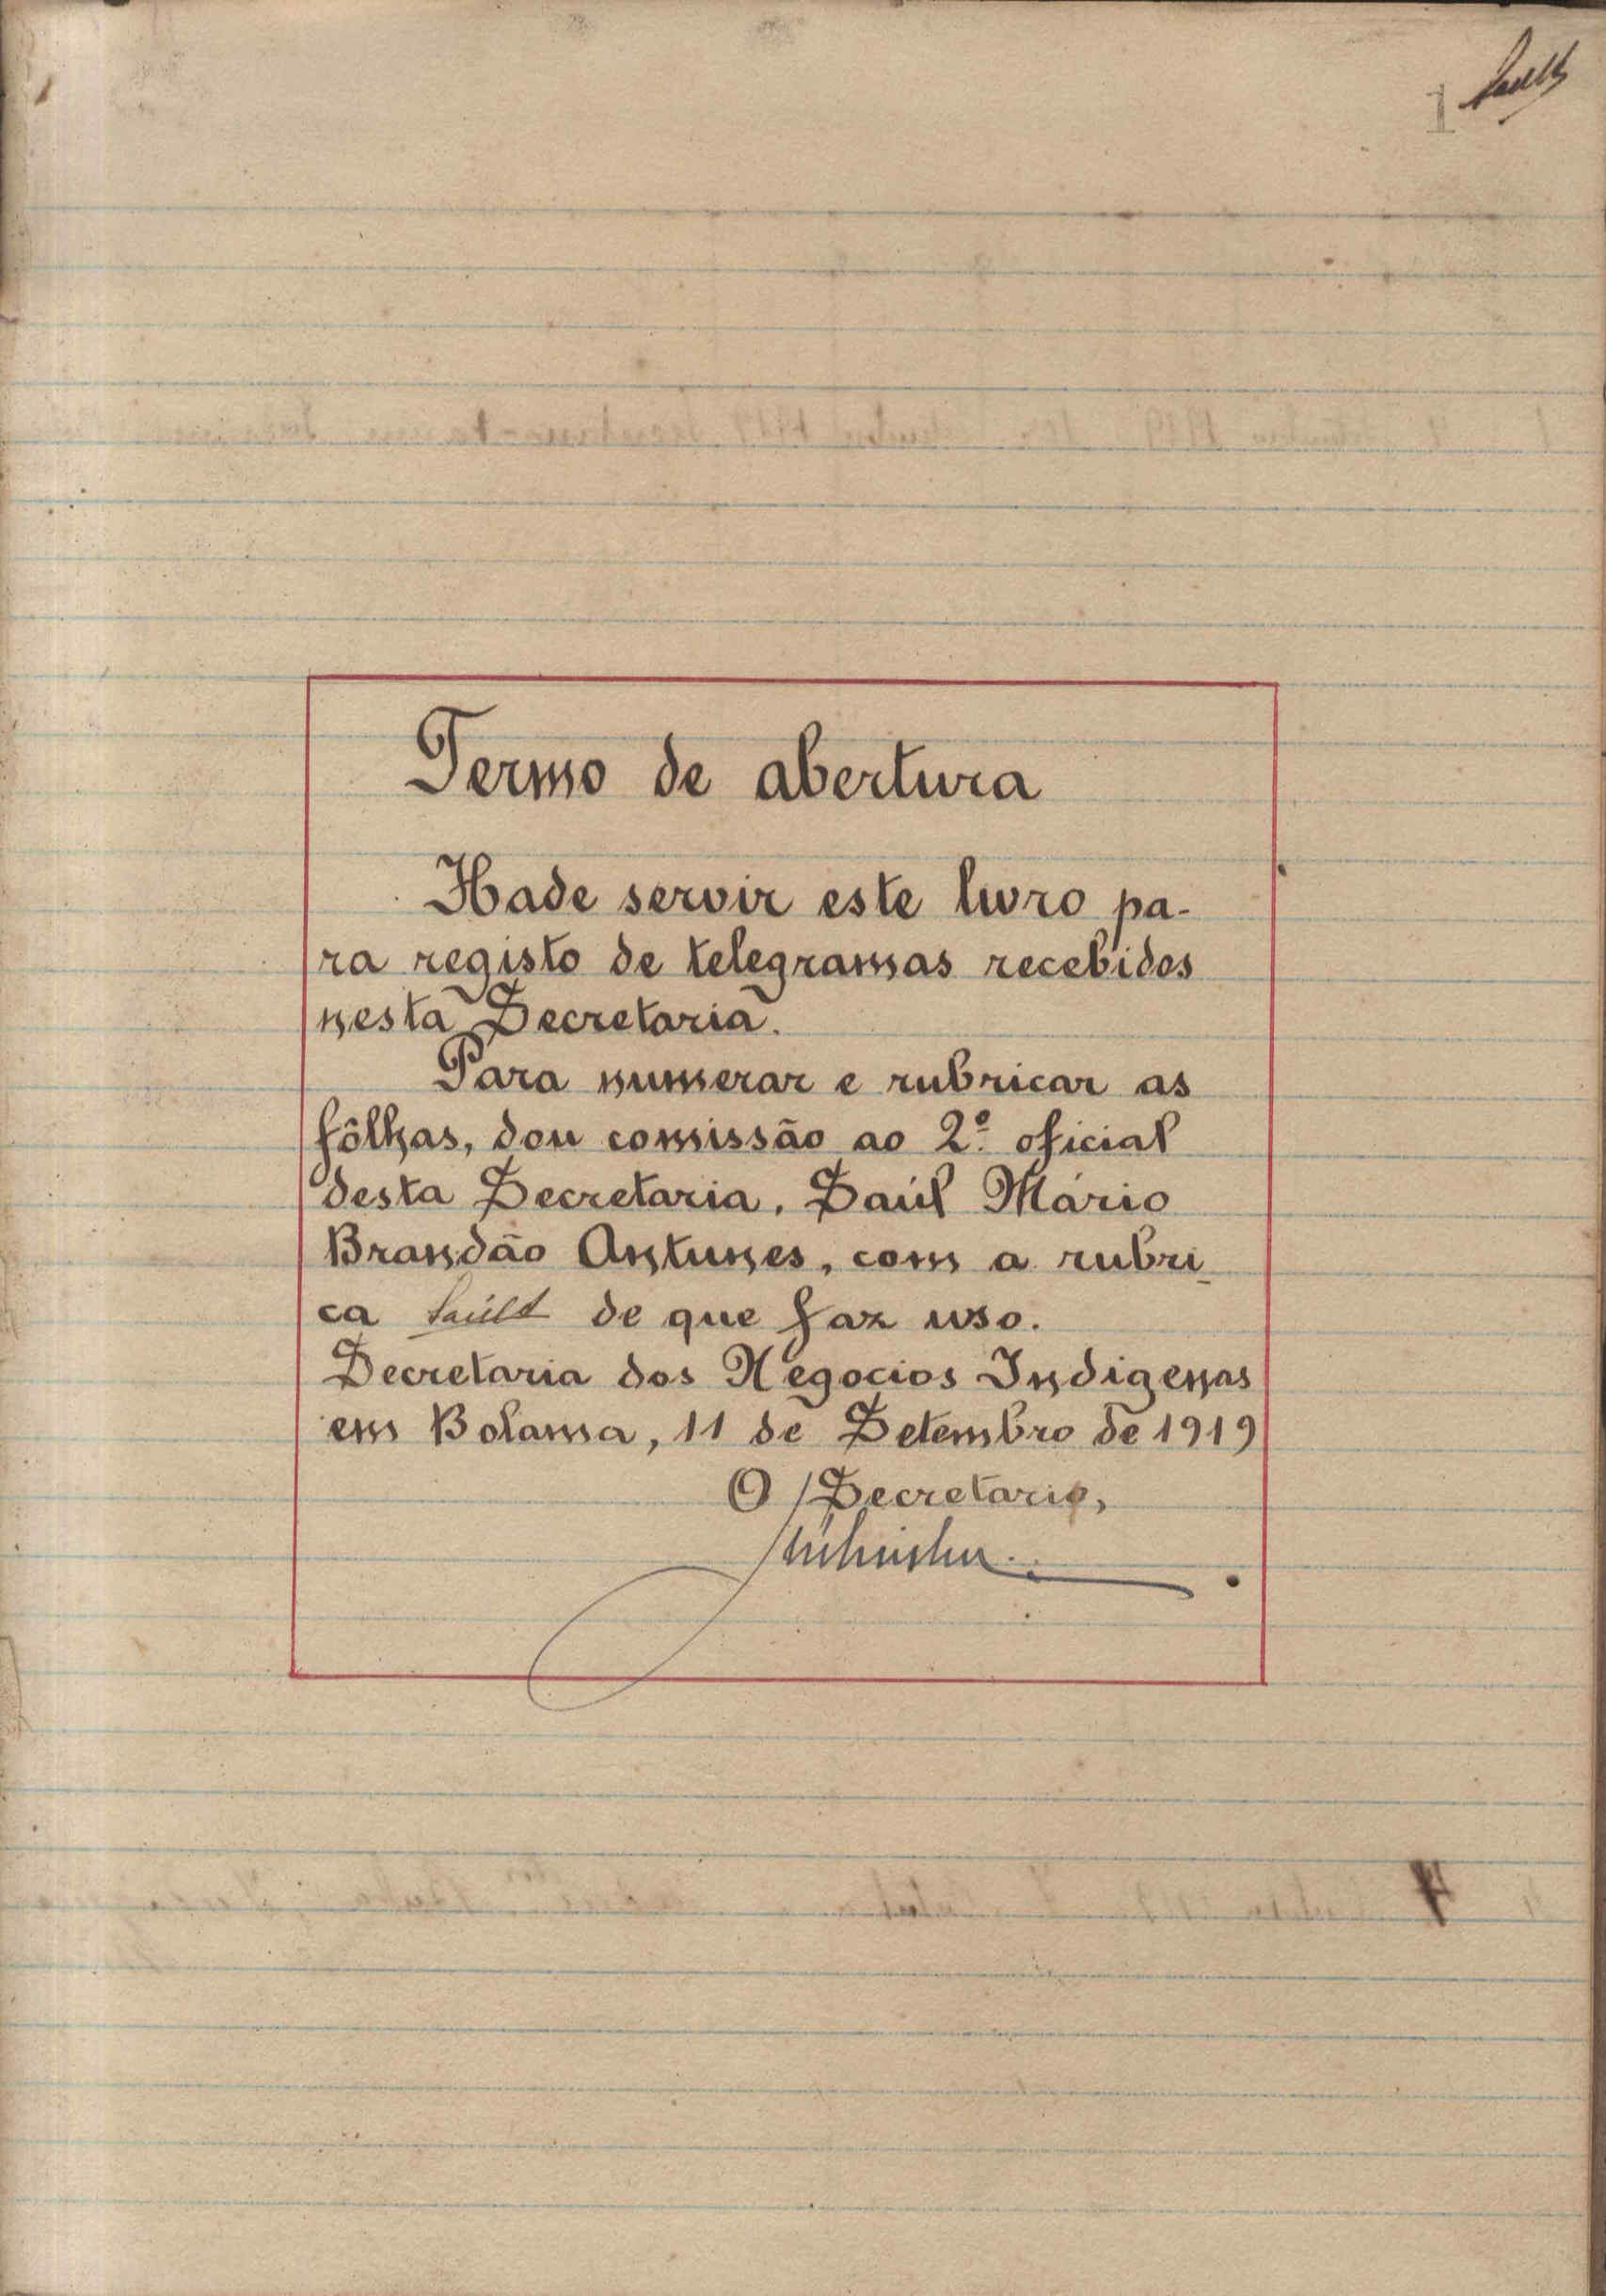 1
Termo de abertura
Hade servir este livro pa-
ra registo de telegramas recebidos
nesta Secretaria.
Para numerar e rubricar as
fôlhas, dou comissão ao 2º oficial
desta Secretaria, Saúl Mário
Brandão Antunes, com a rubri-
ca de que faz uso.
Secretaria dos Negocios Indigenas
em Bolama, 11 de Setembro de 1919
O Secretario,